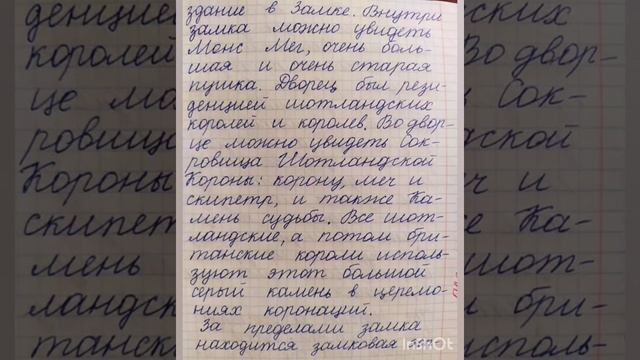 здание в Замке. Внутри
замка можно увидеть
Монс Мег, очень боль-
шая и очень старая
пушка. Дворец был рези-
денцией шотландских
королей и королев. Во двор-
це можно увидеть Сок-
ровища Шотландской
Короны: корону, меч и
скипетр, и также Ка-
мень судьбы. Все шот-
ландские, а потом бри-
танские короли исполь-
зуют этот большой
серый камень в церемо-
ниях коронаций.
За пределами замка
находится замковая